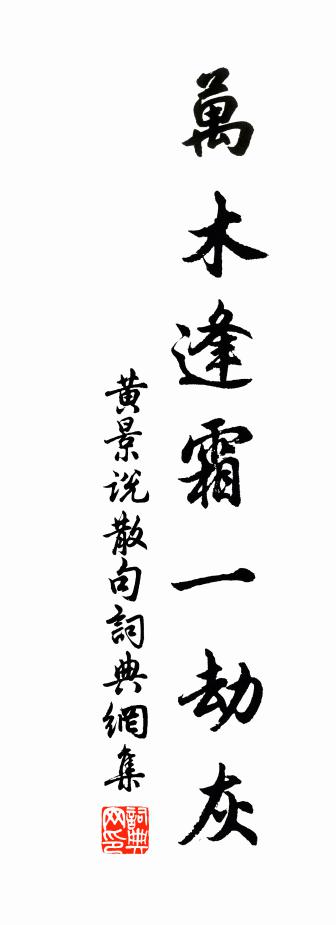 萬木逢霜一劫灰
黃景说散句詞典網集
詞典网印